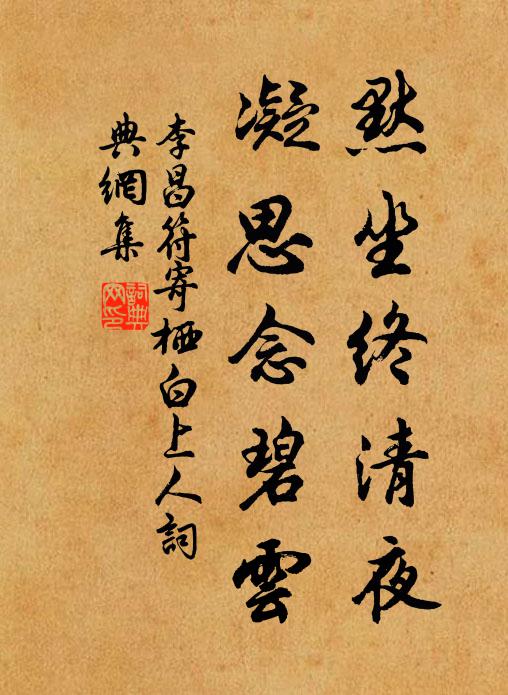 默坐終清夜
凝思念碧雲
李昌符寄栖白上人詞
典網集
詞典
网印